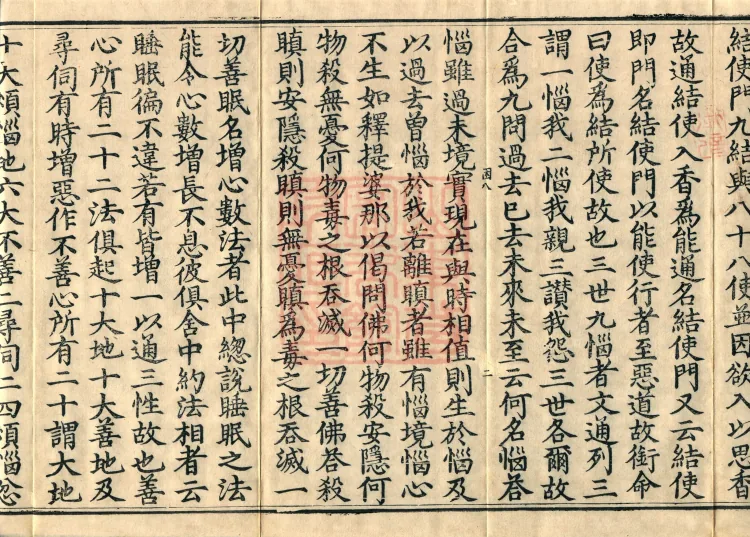 結使門九結與八十八使並因欲入以思香
故通結使入香爲能通名結使門又云結使
即門名結使門以能使行者至惡道故銜命
曰使爲結所使故也三世九惱者文通列三
謂一惱我二惱我親三讃我怨三世各爾故
合爲九問過去已去未來未至云何名惱荅
函八
二
惱雖過未境實現在與時相值則生於惱及
以過去曾惱於我若離瞋者雖有惱境惱心
不生如釋提婆那以偈問佛何物殺安隱何
物殺無憂何物毒之根吞滅一切善佛荅殺
瞋則安隱殺瞋則無憂瞋爲毒之根吞滅一
切善眠名增心數法者此中緫說睡眠之法
能令心數增長不息彼俱舍中約法相者云
睡眠徧不違若有皆增一以通三性故也善
心所有二十二法俱起十大地十大善地及
尋伺有時增惡作不善心所有二十謂大地
十大煩惱地六大不善二尋伺二四煩惱忿